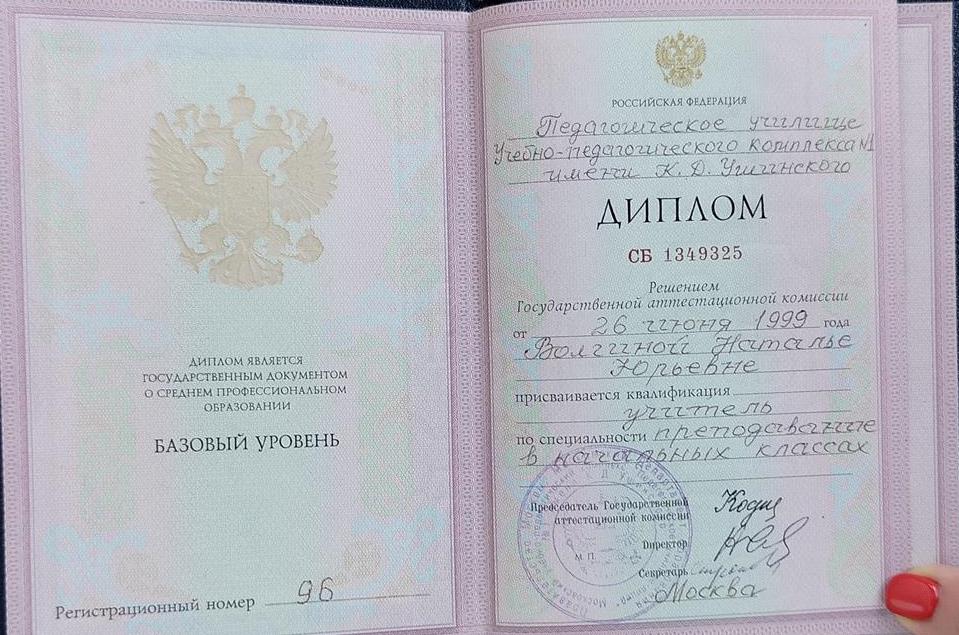 ДИПЛОМ ЯВЛЯЕТСЯ
ГОСУДАРСТВЕННЫМ ДОКУМЕНТОМ
О СРЕДНЕМ ПРОФЕССИОНАЛЬНОМ
ОБРАЗОВАНИИ
БАЗОВЫЙ УРОВЕНЬ
Регистрационный номер 96
РОССИЙСКАЯ ФЕДЕРАЦИЯ
Педагогическое училище
Учебно-педагогического комплекса №1
имени К. Д. Ушинского
ДИПЛОМ
СБ 1349325
Решением
Государственной аттестационной комиссии
от 26 июня 1999 года
Волгиной Наталье
Юрьевне
присваивается квалификация
учитель
по специальности преподавание
в начальных классах
Председатель Государственной
аттестационной комиссии
Директор
М. П.
Секретарь
Москва